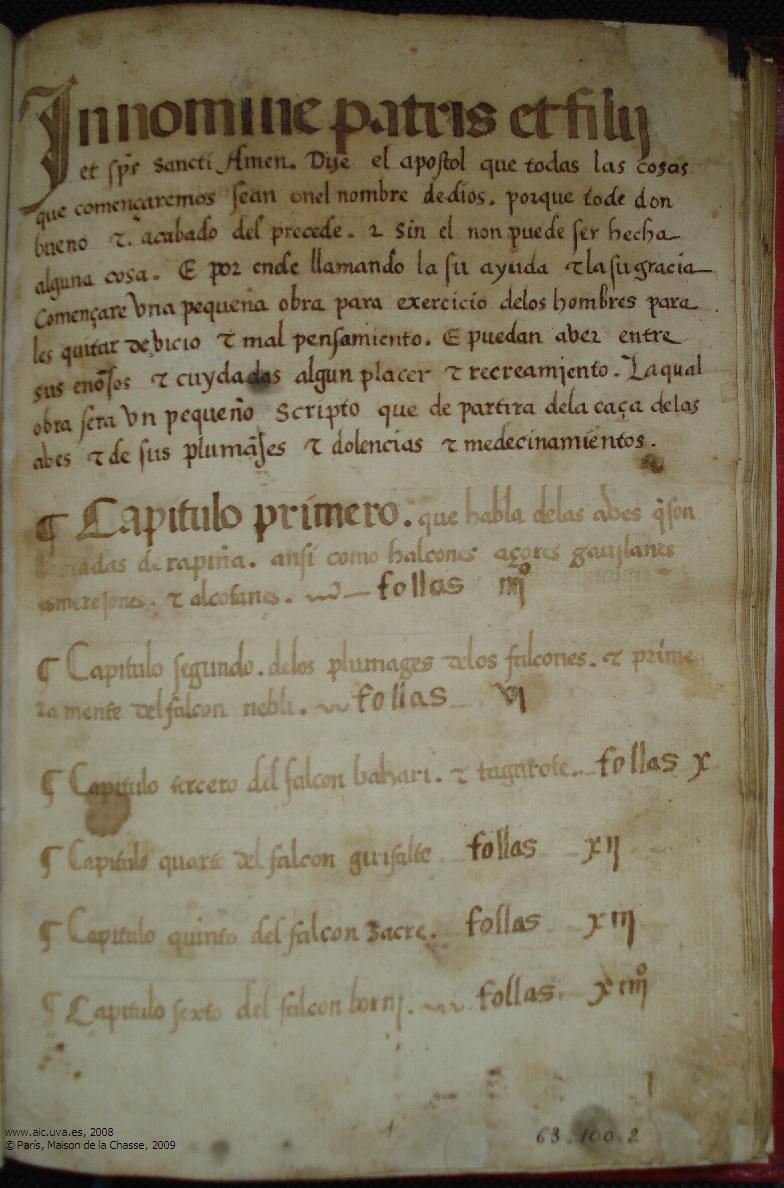 In nomine patris et filij
et sp̃s sancti Amen. Dize el apostol que todas las cosas
que començaremos sean enel nombre dedios. porque tode don
bueno τ acabado del precede. τ sin el non puede ser hecha
alguna cosa. E por ende llamando la su ayuda τ la su gracia
Començare vna pequeña obra para exercicio delos hombres para
les quitar de vicio τ mal pensamiento. E puedan aber entre
sus τ cuydadas algun placer τ recreamjento. La qual
obra sera vn pequeño scripto que de partira dela caça delas
abes τ de sus plumãjes τ dolencias τ medecinamientos.
¶ Capitulo primero. que habla delas abes q̃ son
de rapiña. ansi como halcones açores gauilanes
esmerejones. τ alcotanes. follas iiijº
¶ Capitulo segundo. delos plumages delos falcones. τ prime
ra mente del falcon nebli. follas vj
¶ Capitulo tercero del falcon bahari. τ tagarote. follas x
¶ Capitulo quarto del falcon guifalte follas xij
¶ Capitulo quinto del falcon sacre. follas xiij
¶ Capitulo sexto del falcon bornj. follas xiiijº
63.100.2
www.aic.uva.es, 2008
© París, Maison de la Chasse, 2009